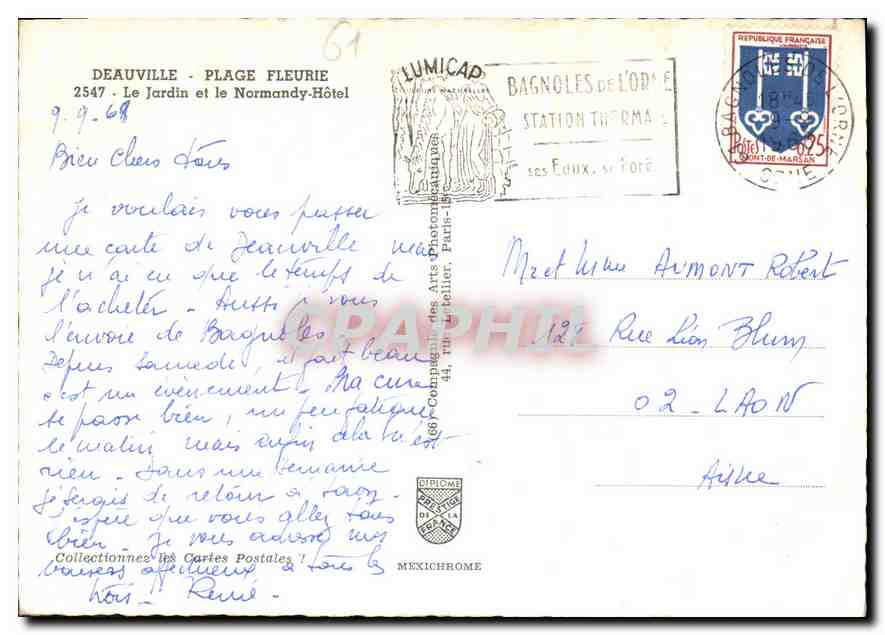 61
DEAUVILLE - PLAGE FLEURIE
2547 - Le Jardin et le Normandy-Hôtel
9.9.68
Bien Chers tous
Je voulais vous passer
une carte de Deauville mais
je n'ai eu que le temps de
l'acheter - Aussi je vous
l'envoie de Bagnoles
Depuis Samedi, il fait beau
c'est un évènement - Ma cure
se passe bien, un peu fatiguée
le matin mais enfin cela n'est
rien - Dans une semaine
je serais de retour à Laon -
J'espère que vous allez tous
bien - Je vous adresse mes
baisers affectueux à tous les
trois - Renée -
Collectionnez les Cartes Postales !
(66) Compagnie des Arts Photomécaniques
44, rue Letellier, Paris-15e
DIPLOME
PRESTIGE
DE LA
FRANCE
MEXICHROME
LUMICAP
BAGNOLES DE L'ORNE
STATION THERMALE
ses Eaux, sa Forêt
REPUBLIQUE FRANÇAISE
POSTES 0,25
MONT-DE-MARSAN
BAGNOLES DE L'ORNE
18H
9-9
ORNE
Mr et Mme AUMONT Robert
128 Rue Léon Blum
02 - LAON
Aisne
CPAPHIL